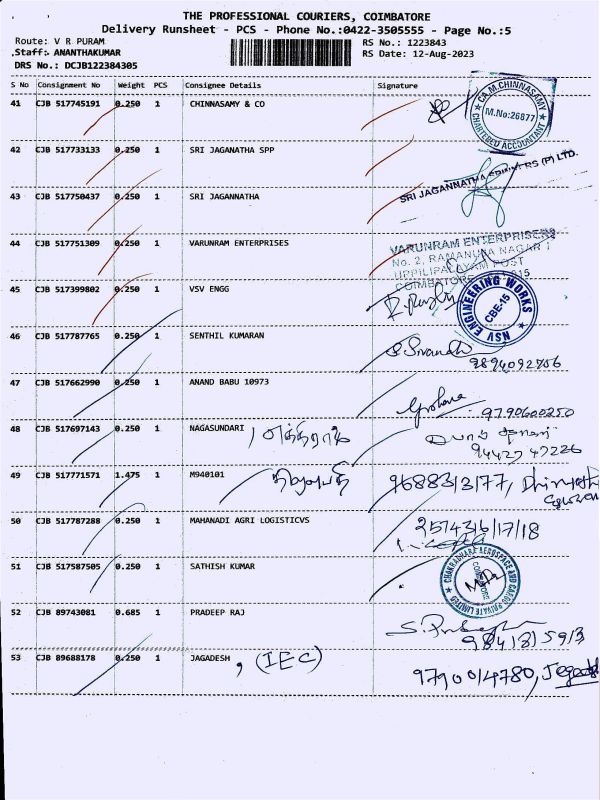 THE PROFESSIONAL COURIERS, COIMBATORE
Delivery Runsheet - PCS - Phone No.:0422-3505555 - Page No.:5
Route: V R PURAM RS No.: 1223843
.Staff: ANANTHAKUMAR RS Date: 12-Aug-2023
DRS No.: DCJB122384305
S No Consignment No Weight PCS Consignee Details Signature
41 CJB 517745191 0.250 1 CHINNASAMY & CO
CA.M.CHINNASAMY
M.No:26877
CHARTERED ACCOUNTANT
42 CJB 517733133 0.250 1 SRI JAGANATHA SPP
SRI JAGANNATHA RS (P) LTD.
43 CJB 517750437 0.250 1 SRI JAGANNATHA
44 CJB 517751309 0.250 1 VARUNRAM ENTERPRISES
VARUNRAM ENTERPRISES
No. 2, RAMANUJA NAGAR
UPPILIPALAYAM POST
COIMBATORE 015
45 CJB 517399802 0.250 1 VSV ENGG
NSV ENGINEERING WORKS
CBE-15
46 CJB 517787765 0.250 1 SENTHIL KUMARAN
9894092756
47 CJB 517662990 0.250 1 ANAND BABU 10973
9790600250
48 CJB 517697143 0.250 1 NAGASUNDARI
94427 47226
49 CJB 517771571 1.475 1 M940101 9688313177,
50 CJB 517787288 0.250 1 MAHANADI AGRI LOGISTICVS
2574316/17/18
51 CJB 517587505 0.250 1 SATHISH KUMAR
CHAKRADHARA AEROSPACE AND CARGO PRIVATE LIMITED
COIMBATORE
52 CJB 89743081 0.685 1 PRADEEP RAJ
9841315913
53 CJB 89688178 0.250 1 JAGADESH , (IEC)
9790014780,